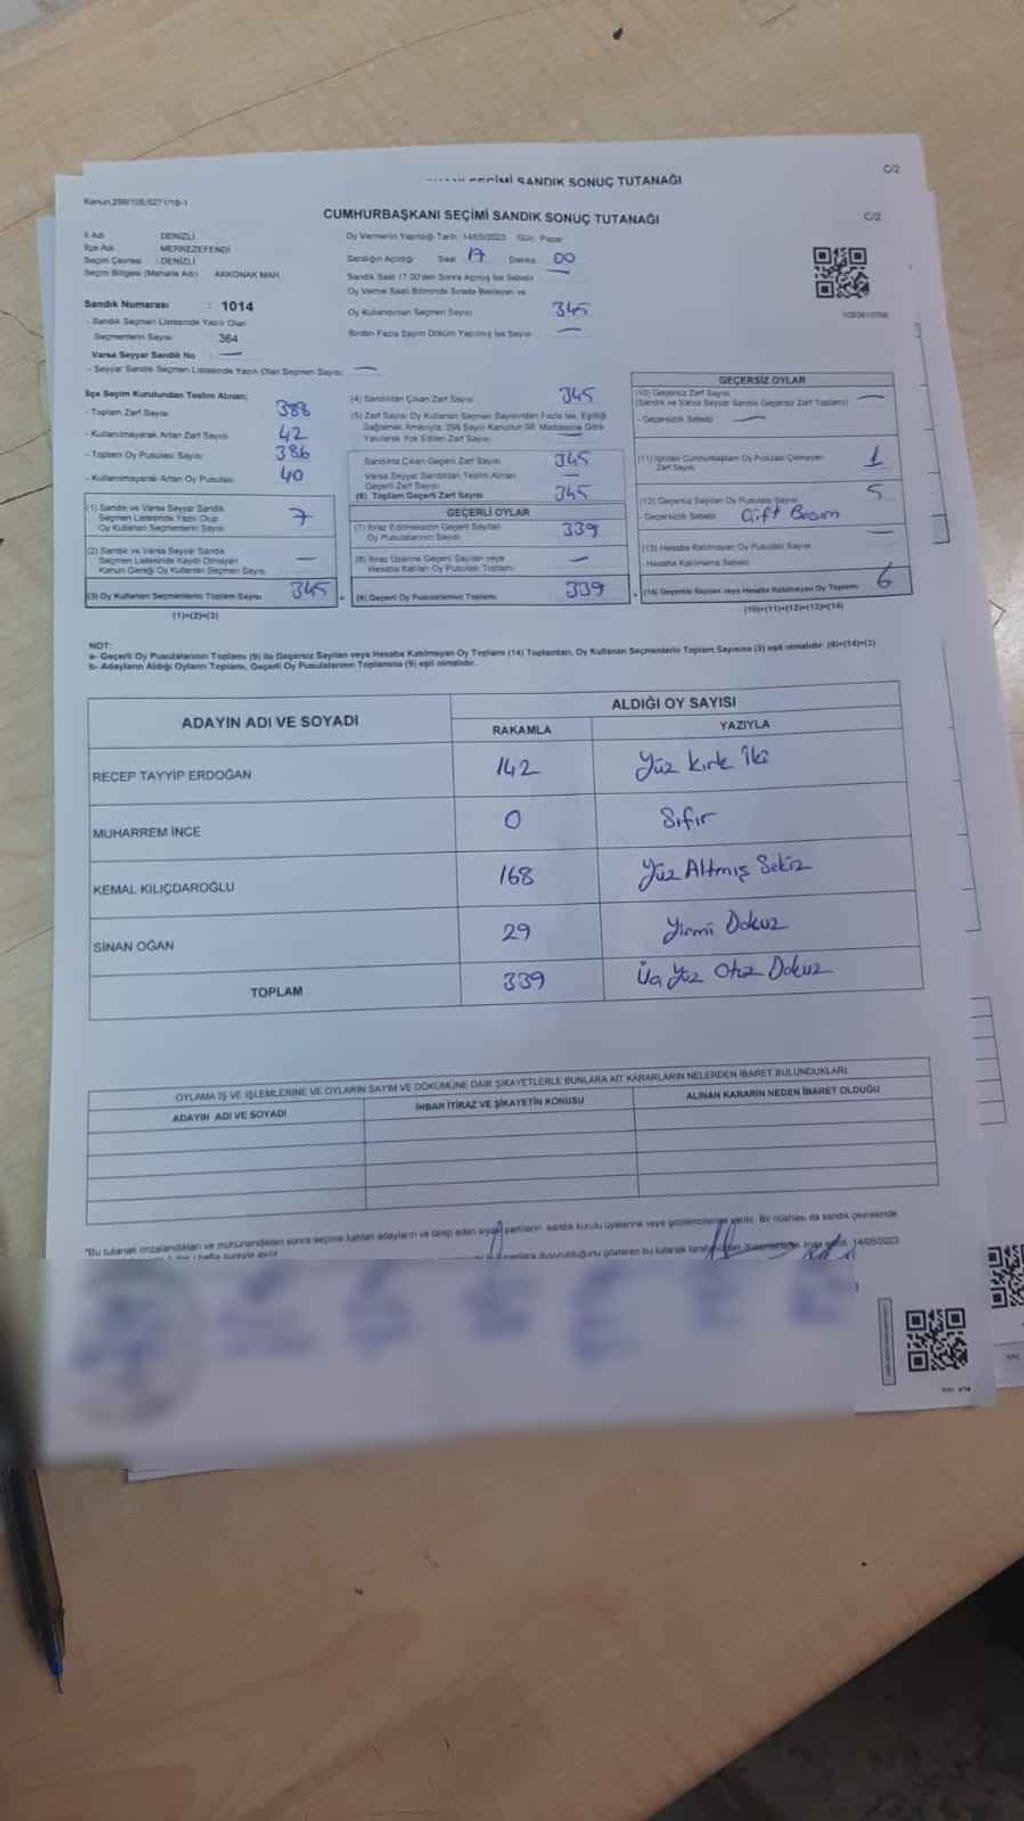 SEÇİMİ SANDIK SONUÇ TUTANAĞI
C/2
CUMHURBAŞKANI SEÇİMİ SANDIK SONUÇ TUTANAĞI
C/2
İl Adı : DENİZLİ
İlçe Adı : MERKEZEFENDİ
Seçim Çevresi : DENİZLİ
Seçim Bölgesi (Mahalle Adı) : AKKONAK MAH.
Sandık Numarası : 1014
- Sandık Seçmen Listesinde Yazılı Olan
Seçmenlerin Sayısı 364
Varsa Seyyar Sandık No : —
- Seyyar Sandık Seçmen Listesinde Yazılı Olan Seçmen Sayısı: —
Oy Vermenin Yapıldığı Tarih : 14/05/2023 Gün: Pazar
Sandığın Açıldığı Saat 17 Dakika 00
Sandık Saat 17.00'den Sonra Açılmış İse Sebebi —
Oy Verme Saati Bitiminde Sırada Bekleyen ve
Oy Kullandırılan Seçmen Sayısı 345
Birden Fazla Sayım Döküm Yapılmış İse Sayısı —
İlçe Seçim Kurulundan Teslim Alınan;
- Toplam Zarf Sayısı 388
- Kullanılmayarak Artan Zarf Sayısı 42
- Toplam Oy Pusulası Sayısı 386
- Kullanılmayarak Artan Oy Pusulası 40
(1) Sandık ve Varsa Seyyar Sandık
Seçmen Listesinde Yazılı Olup
Oy Kullanan Seçmenlerin Sayısı 7
(2) Sandık ve Varsa Seyyar Sandık
Seçmen Listesinde Kaydı Olmayan
Kanun Gereği Oy Kullanan Seçmen Sayısı —
(3) Oy Kullanan Seçmenlerin Toplam Sayısı 345
(1)+(2)=(3)
(4) Sandıktan Çıkan Zarf Sayısı 345
(5) Zarf Sayısı Oy Kullanan Seçmen Sayısından Fazla İse, Eşitliği
Sağlamak Amacıyla, 298 Sayılı Kanunun 98. Maddesine Göre
Yakılarak Yok Edilen Zarf Sayısı —
Sandıkta Çıkan Geçerli Zarf Sayısı 345
Varsa Seyyar Sandıktan Teslim Alınan
Geçerli Zarf Sayısı —
(6) Toplam Geçerli Zarf Sayısı 345
GEÇERLİ OYLAR
(7) İtiraz Edilmeksizin Geçerli Sayılan
Oy Pusulalarının Sayısı 339
(8) İtiraz Üzerine Geçerli Sayılan veya
Hesaba Katılan Oy Pusulası Toplamı —
(9) Geçerli Oy Pusulalarının Toplamı 339
GEÇERSİZ OYLAR
(10) Geçersiz Zarf Sayısı
(Sandık ve Varsa Seyyar Sandık Geçersiz Zarf Toplamı) —
- Geçersizlik Sebebi —
(11) İçinden Cumhurbaşkanı Oy Pusulası Çıkmayan
Zarf Sayısı 1
(12) Geçersiz Sayılan Oy Pusulası Sayısı 5
- Geçersizlik Sebebi Çift Basım
(13) Hesaba Katılmayan Oy Pusulası Sayısı —
- Hesaba Katılmama Sebebi
(14) Geçersiz Sayılan veya Hesaba Katılmayan Oy Toplamı 6
(10)+(11)+(12)+(13)=(14)
NOT:
a- Geçerli Oy Pusulalarının Toplamı (9) ile Geçersiz Sayılan veya Hesaba Katılmayan Oy Toplamı (14) Toplamları, Oy Kullanan Seçmenlerin Toplam Sayısına (3) eşit olmalıdır. (9)+(14)=(3)
b- Adayların Aldığı Oyların Toplamı, Geçerli Oy Pusulalarının Toplamına (9) eşit olmalıdır.
ADAYIN ADI VE SOYADI
ALDIĞI OY SAYISI
RAKAMLA YAZIYLA
RECEP TAYYİP ERDOĞAN 142 Yüz kırk İki
MUHARREM İNCE 0 Sıfır
KEMAL KILIÇDAROĞLU 168 Yüz Altmış Sekiz
SİNAN OĞAN 29 Yirmi Dokuz
TOPLAM 339 Üç Yüz Otuz Dokuz
OYLAMA İŞ VE İŞLEMLERİNE VE OYLARIN SAYIM VE DÖKÜMÜNE DAİR ŞİKAYETLERLE BUNLARA AİT KARARLARIN NELERDEN İBARET BULUNDUKLARI
ADAYIN ADI VE SOYADI İHBAR İTİRAZ VE ŞİKAYETİN KONUSU ALINAN KARARIN NEDEN İBARET OLDUĞU
"Bu tutanak imzalandıktan ve mühürlendikten sonra seçime katılan adayların ve talep eden siyasi partilerin sandık kurulu üyelerine veya gözlemcilerine verilir. Bir nüshası da sandık çevresinde
14/05/2023